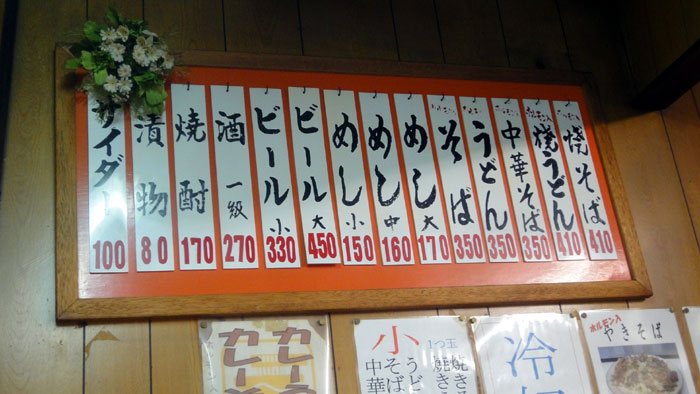 ホルモン入
焼そば
410
ホルモン入
焼うどん
410
ホルモン入
中華そば
350
うどん
350
そば
350
めし大
170
めし中
160
めし小
150
ビール大
450
ビール小
330
酒一級
270
焼酎
170
漬物
80
イダー
100
ホルモン入
やきそば
冷
小
1つ玉
焼き
焼き
うど
そば
中華
カレーう
カレー